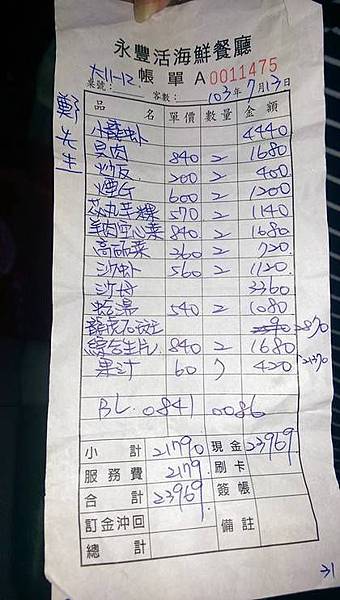 永豐活海鮮餐廳
大11-12 帳單 A 0011475
桌號： 客數： 103年7月13日
鄭先生
品名 單價 數量 金額
小龍蝦 4440
貝肉 840 2 1680
炒飯 200 2 400
煙仔 600 2 1200
炊丸芋粿 570 2 1140
羊肉空心菜 840 2 1680
高麗菜 360 2 720
沙蝦 560 2 1120
沙母 3360
蛤湯 540 2 1080
龍虎石斑 2870
綜合生片 840 2 1680
21370
果汁 60 7 420
BL 0841 0086
小計 21790 現金 23969
服務費 2179 刷卡
合計 23969 簽帳
訂金沖回 備註
總計
31